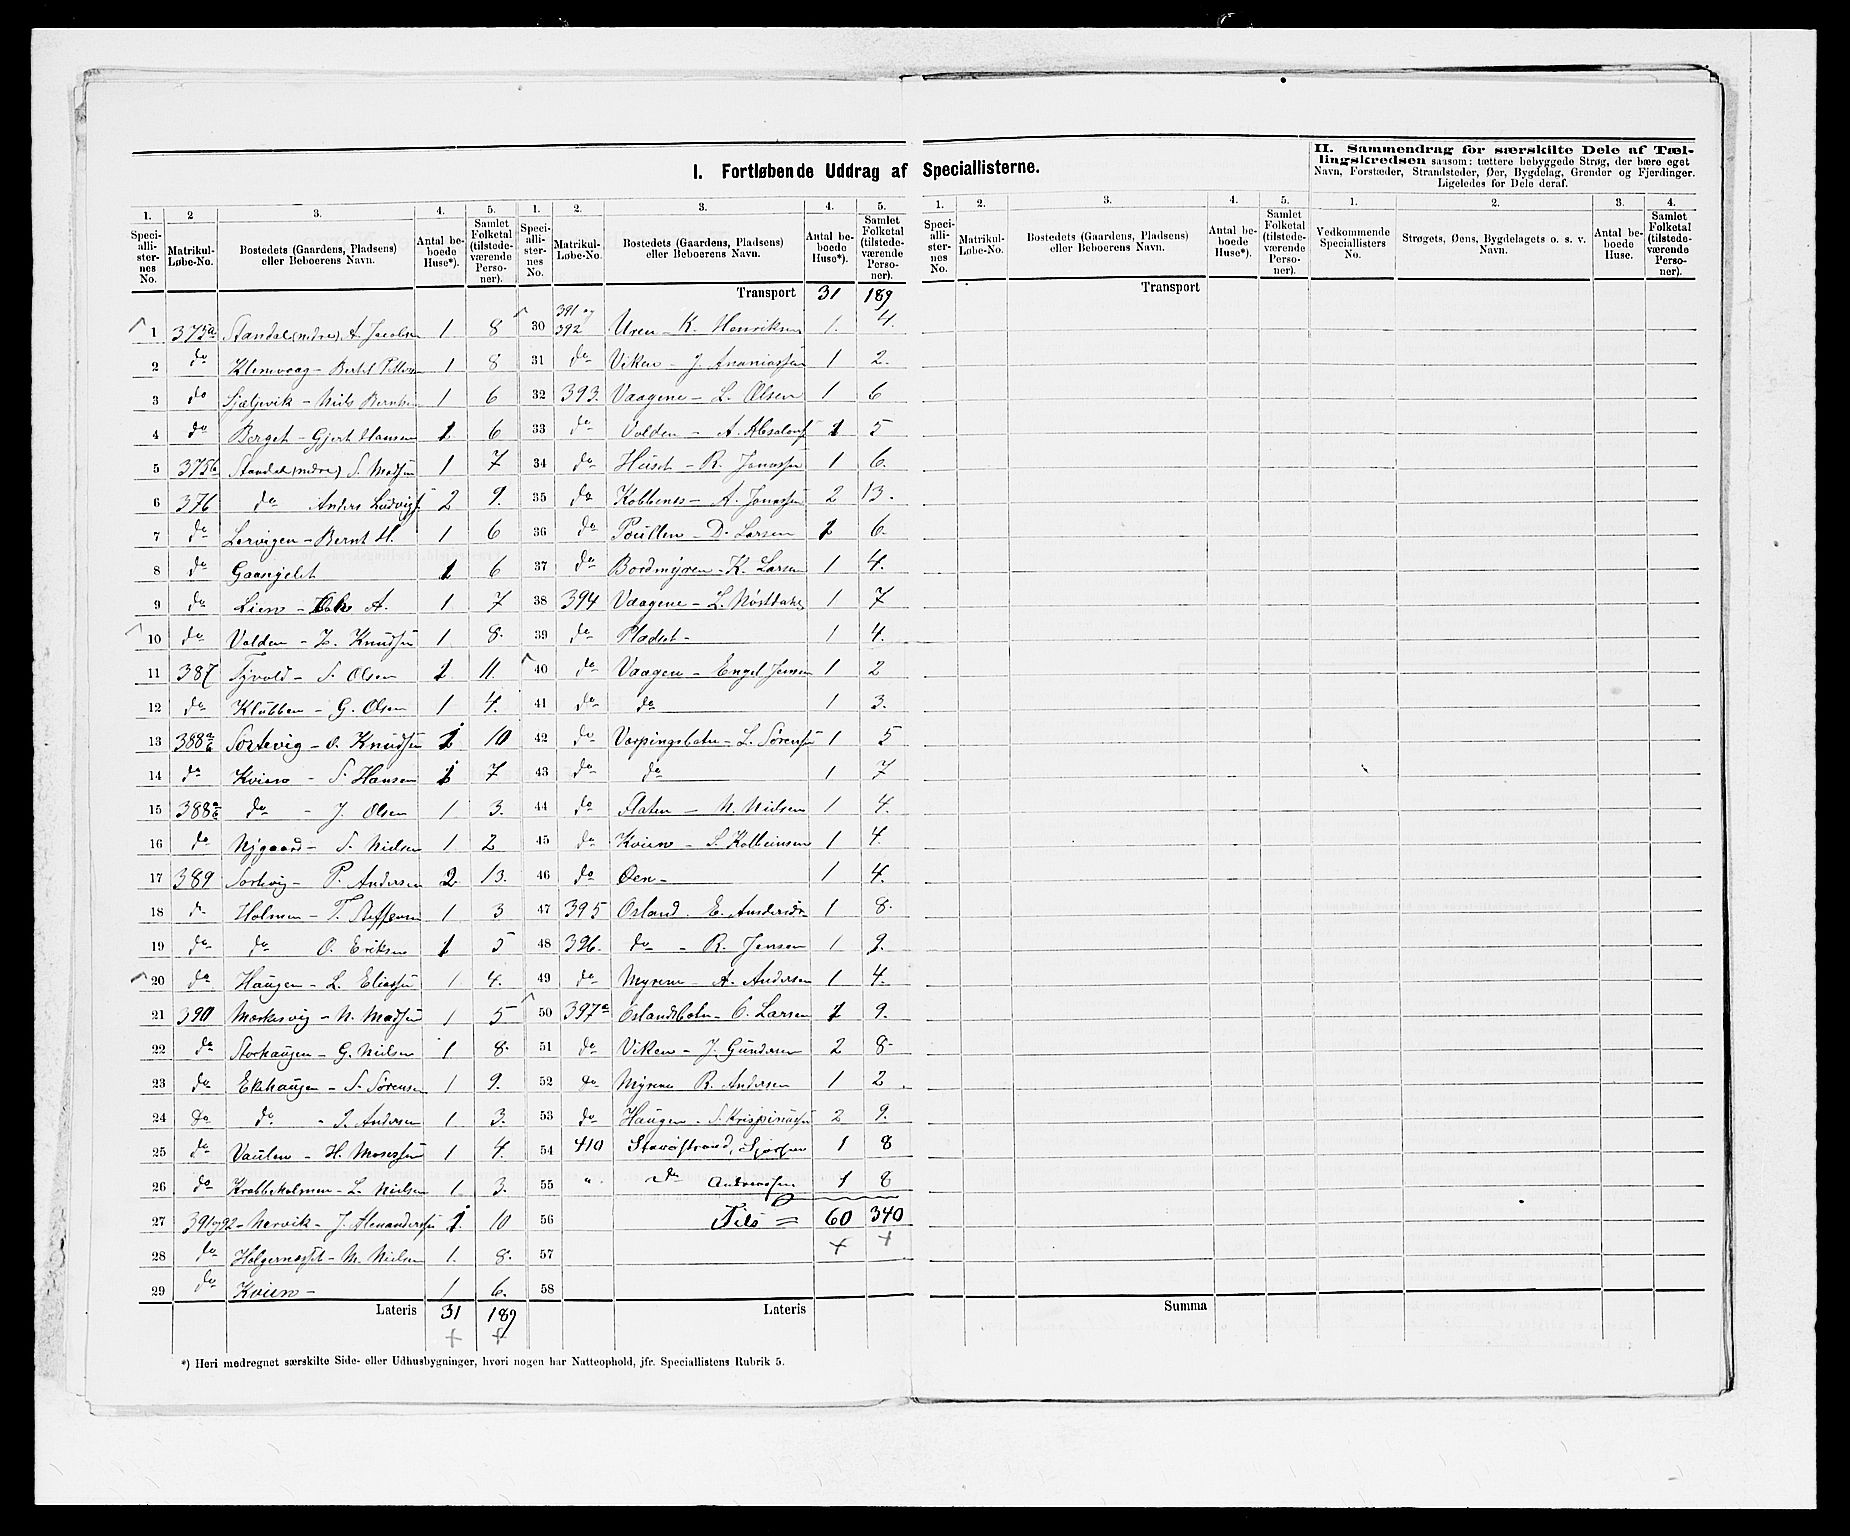 I. Fortløbende Uddrag af Speciallisterne.
II. Sammendrag for særskilte Dele af Tæl-
lingskredsen saasom: tættere bebyggede Strøg, der bære eget
Navn, Forstæder, Strandsteder, Øer, Bygdelag, Grender og Fjerdinger.
Ligeledes for Dele deraf.
1. 2 3. 4. 5. 1. 2. 3. 4. 5. 1. 2. 3. 4. 5. 1. 2. 3. 4.
Speciallisternes No. Matrikul-Løbe-No. Bostedets (Gaardens, Pladsens) eller Beboerens Navn. Antal beboede Huse*). Samlet Folketal (tilstedeværende Personer).
Speciallisternes No. Matrikul-Løbe-No. Bostedets (Gaardens, Pladsens) eller Beboerens Navn. Antal beboede Huse*). Samlet Folketal (tilstedeværende Personer).
Speciallisternes No. Matrikul-Løbe-No. Bostedets (Gaardens, Pladsens) eller Beboerens Navn. Antal beboede Huse*). Samlet Folketal (tilstedeværende Personer).
Vedkommende Speciallisters No. Strøgets, Øens, Bygdelagets o. s. v. Navn. Antal beboede Huse. Samlet Folketal (tilstedeværende Personer).
1 375a Standal (nedre) A. Jacobsen 1 8
2 do Klemvaag - Bertel 1 8
3 do - Niels Berntsen 1 6
4 do Berget - Gjert Hansen 1 6
5 375b Standal (nedre) S. Madsen 1 7
6 376 do Anders Ludvigs 2 9.
7 do Lervigen - Bernt H. 1 6
8 do Gaasngelet 1 6
9 do Lien - A. 1 7
10 do Volden - Knudsen 1 8.
11 387 - S. Olsen 1 11.
12 do Klubben - G. Olsen 1 4.
13 388 a/b Sortevig - O. Knudsen 1 10
14 do Kvien - S. Hansen 1 7
15 388 a/b do - J. Olsen 1 3.
16 do Nygaard - S. Nielsen 1 2
17 389 Sortevig - P. Andersen 2 13.
18 do Holmen - T. Steffensen 1 3
19 do do O. Eriksen 1 5
20 do Haugen - L. Eliassen 1 4.
21 390 Mærkesvig - N. Madsen 1 5
22 do Storhaugen - G. Nielsen 1 8.
23 do Ekhaugen - S. Sørensen 1 9.
24 do do - S. Andersen 1 3.
25 do Vaulen - H. Mosessen 1 4.
26 do Krabbeholmen - L. Nielsen 1. 3.
27 391 og 92 - Nervik - J. Alexandersen 1. 10
28 do Holgernesset - M. Nielsen 1. 8.
29 do Kvien - 1 6.
Lateris 31 189
Transport 31 189
30 391 og 392 Uren - K. Henriksen 1. 4.
31 do Viken - J. Ananiassen 1 2.
32 393. Vaagene - L. Olsen 1 6
33 do Volden - A. Absalons 1 5
34 do Huset - R. Jonassen 1 6.
35 do Kobbenes - A. Jonassen 2 13.
36 do - D. Larsen 1 6.
37 do Bordmyren - K. Larsen 1 4.
38 394 Vaagene - L. Nøstbakk 1 7
39 do Pladset - 1 4.
40 do Vaagen - Engel Jensen 1 2
41 do do 1 3.
42 do Varpingsbotn - L. Sørensen 1 5
43 do do 1 7
44 do Flaten - N. Nielsen 1 4.
45 do Kvien - S. Kolbeinsen 1 4.
46 do Øen - 1 4.
47 395 Osland. E. Andersdr 1 8.
48 396. do - R. Jensen 1 9.
49 do Myrene - A. Andersen 1 4.
50 397a Oslandsbotn - O. Larsen 1 9.
51 do Viken - J. Gundersen 2 8
52 do Myrene R. Andersen 1 2
53 do Haugen - S. Krispinussen 2 9.
54 410 1 8
55 " do Andreassen 1 8
56 Tils = 60 340
57
58
Lateris
Transport
Summa
*) Heri medregnet særskilte Side- eller Udhusbygninger, hvori nogen har Natteophold, jfr. Speciallistens Rubrik 5.